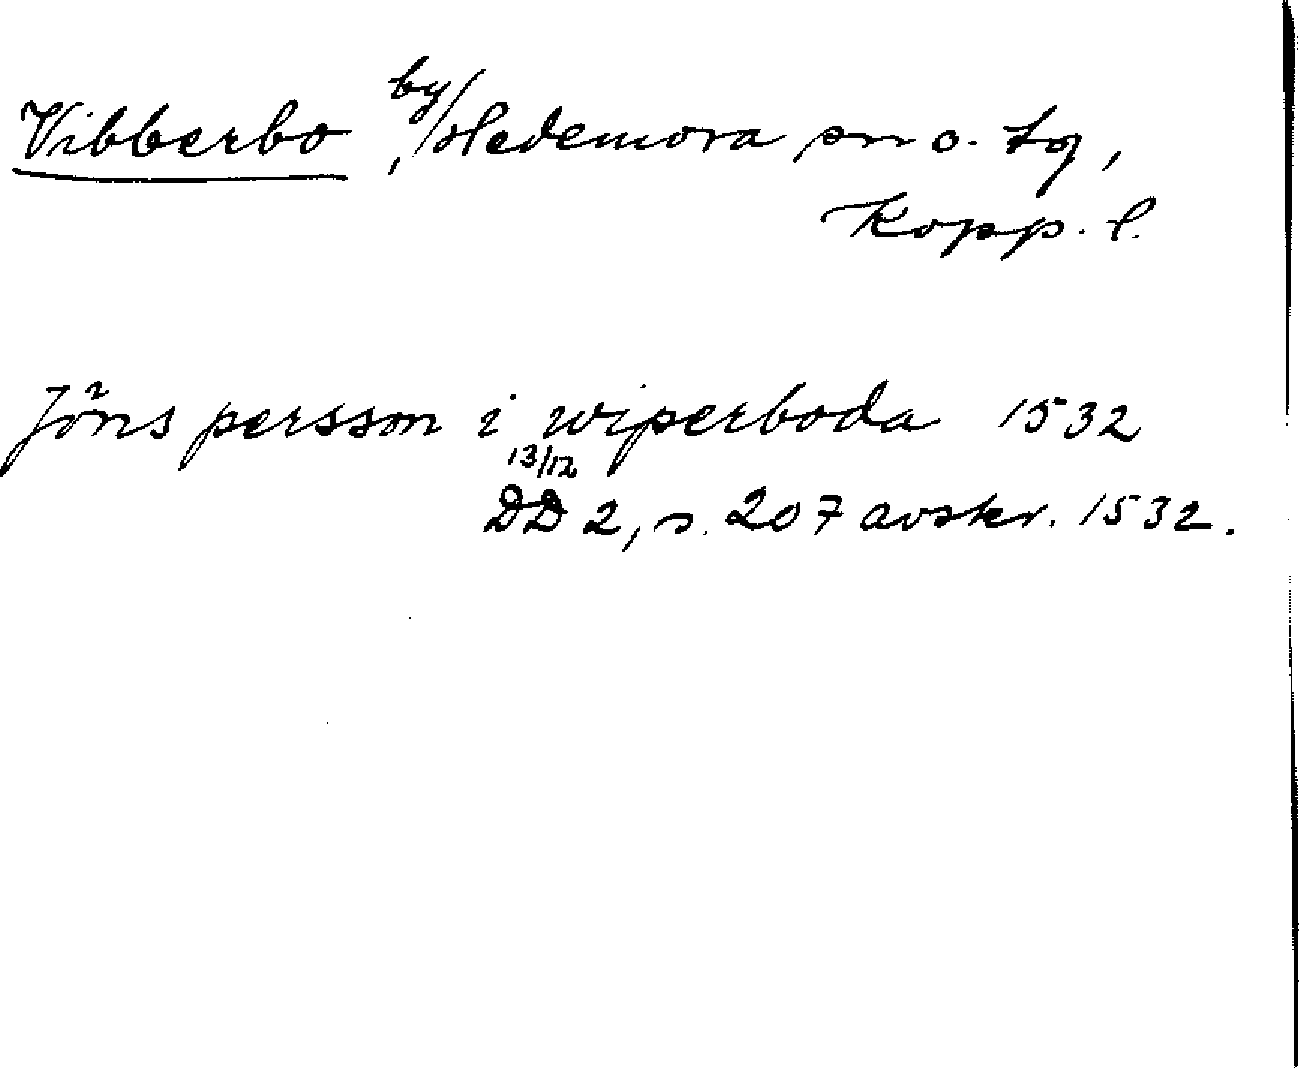 Vibberbo, by/Hedemora sn o. tg,
Kopp. l.
Jöns persson i wiperboda 1532
13/12
DD 2, s. 207 avskr. 1532.